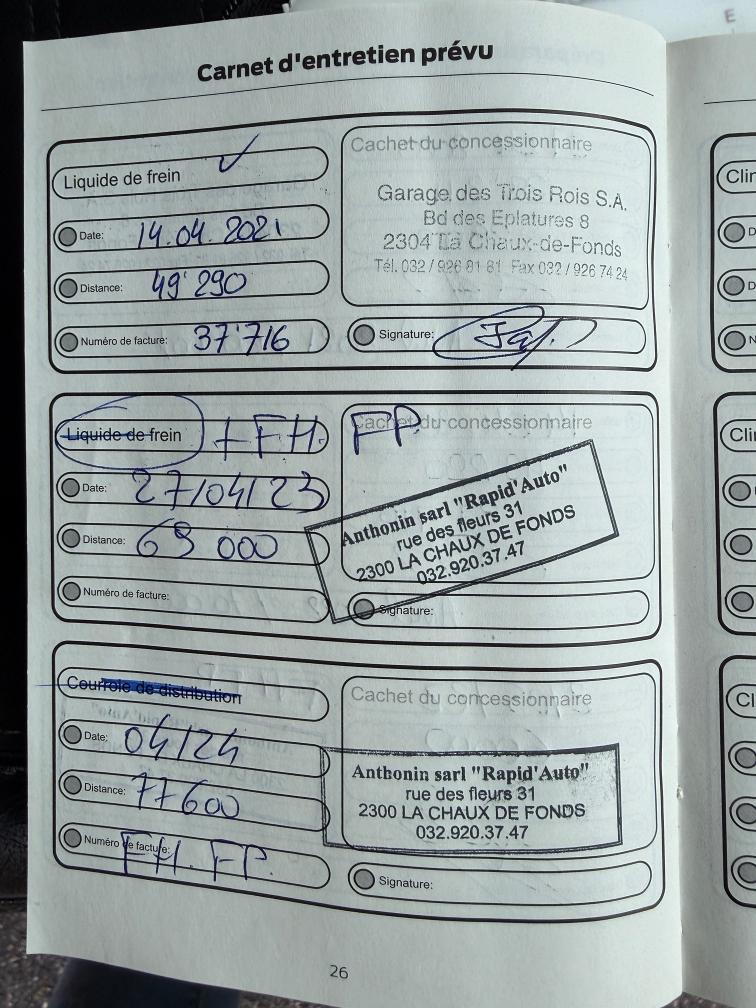 E
Carnet d'entretien prévu
Liquide de frein ✓
Date: 14.04.2021
Distance: 49'290
Numéro de facture: 37'716
Cachet du concessionnaire
Garage des Trois Rois S.A.
Bd des Eplatures 8
2304 La Chaux-de-Fonds
Tél. 032 / 926 81 81 Fax 032 / 926 74 24
Signature:
Liquide de frein + FH. FP.
Date: 27/04/23
Distance: 69 000
Numéro de facture:
Cachet du concessionnaire
Anthonin sarl "Rapid'Auto"
rue des fleurs 31
2300 LA CHAUX DE FONDS
032.920.37.47
Signature:
Courroie de distribution
Date: 04/24
Distance: 77600
Numéro de facture: FH. FP.
Cachet du concessionnaire
Anthonin sarl "Rapid'Auto"
rue des fleurs 31
2300 LA CHAUX DE FONDS
032.920.37.47
Signature:
26
Clir
D
D
N
Cli
Cl